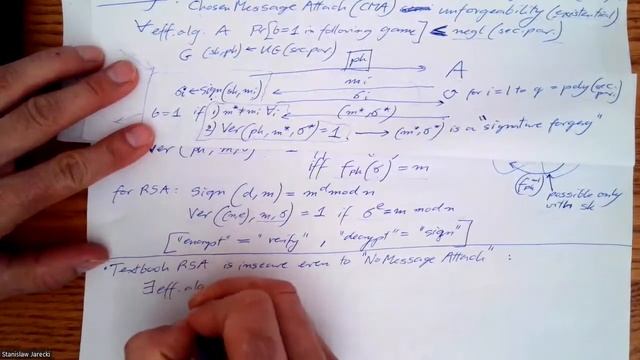 Chosen Message Attack (CMA) unforgeability (existential)
∀ eff. alg. A Pr[b=1 in following game] ≤ negl(sec. par.)
G (sk,pk) ← KG(sec par)
pk
A
mi
σi ← Sign(sk, mi)
σi
for i = 1 to q = poly(sec. par.)
b=1 if 1) m* ≠ mi ∀i
(m*, σ*)
2) Ver(pk, m*, σ*) = 1 → (m*, σ*) is a "signature forgery"
iff fpk(σ) = m
for RSA: sign (d, m) = m^d mod n
possible only with sk
Ver((n,e), m, σ) = 1 if σ^e = m mod n
["encrypt" = "verify", "decrypt" = "sign"]
• Textbook RSA is insecure even to "No Message Attack" :
∃ eff. alg
Stanislaw Jarecki